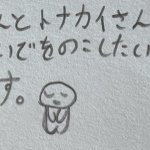 んとトナカイさん
いでをのこしたい
す。